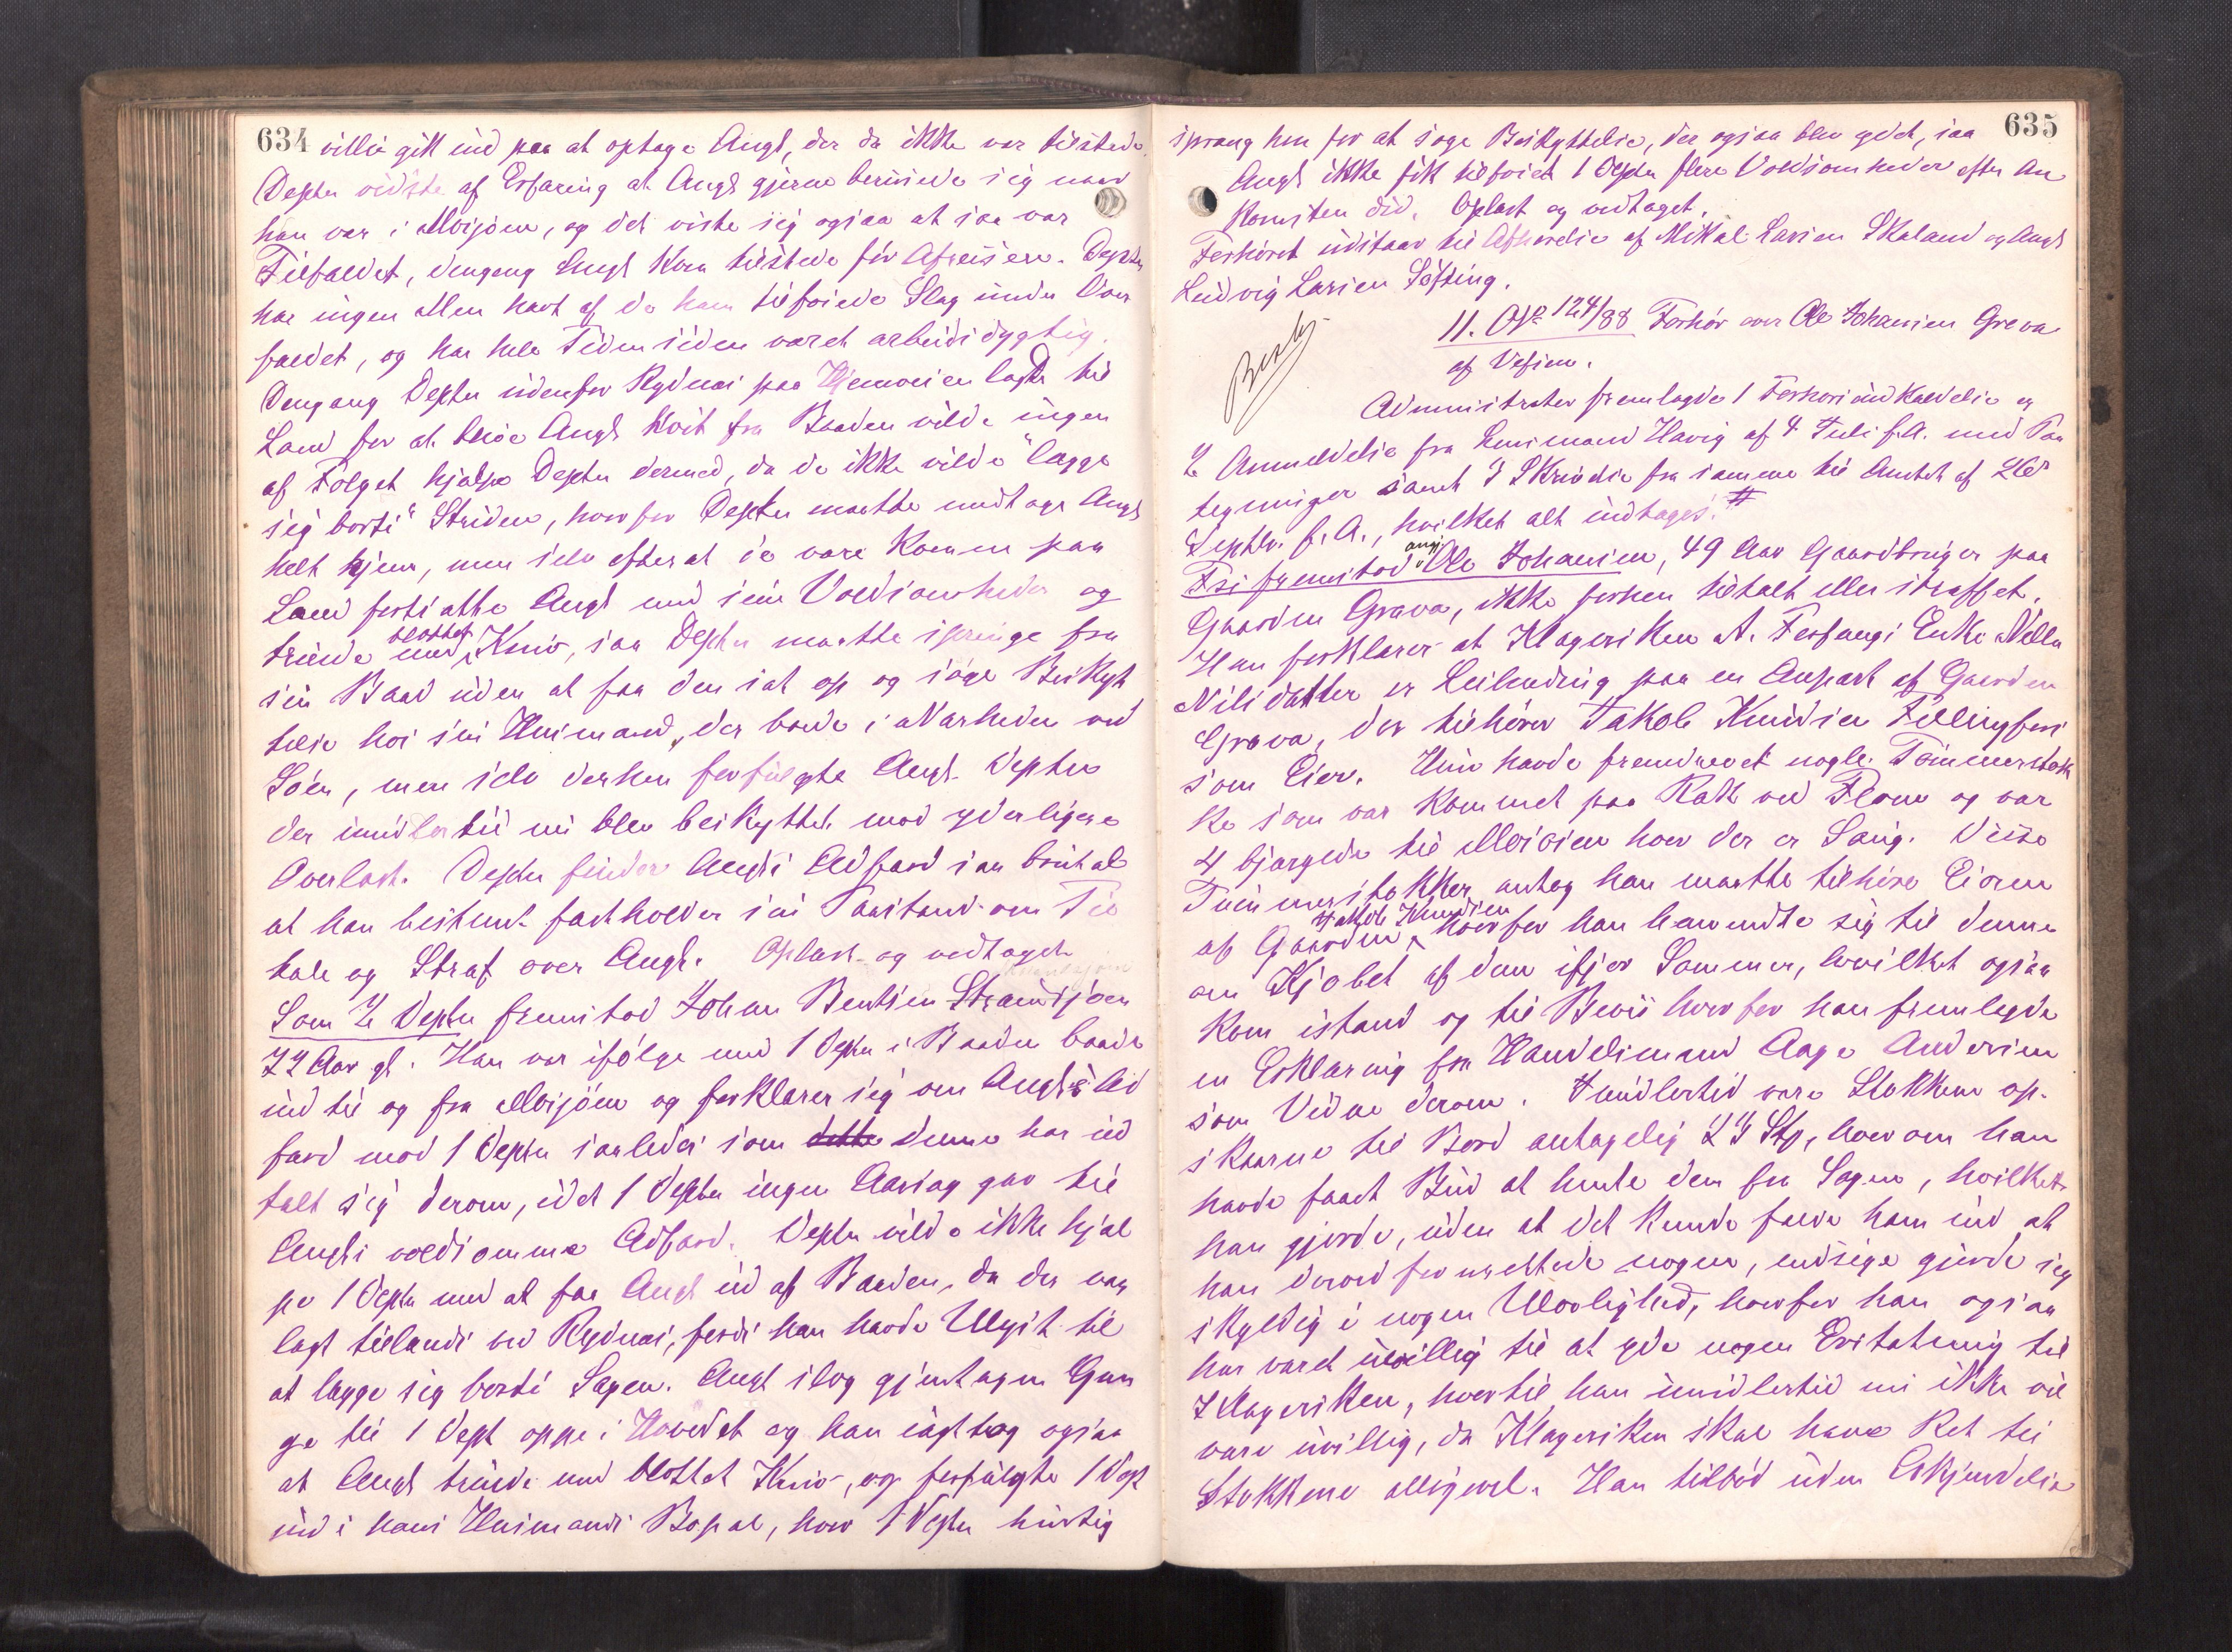 634
villie gik ind paa at optage Angl, der da ikke var tilstede.
Depten vidste af Erfaring at Angl gjerne berusede sig naar
han var i Mosjøen, og det viste sig ogsaa at saa var
Tilfældet, dengang Angl kom tilstede før Afreisen. Depten
har ingen Men havt af de ham tilføiede Slag under Over
faldet, og har hele Tiden siden været arbeidsdygtig.
Dengang Depten udenfor Rydnæs paa Hjemveien lagde til
Land for at blive Angl kvit fra Baaden vilde ingen
af Følget hjælpe Depten dermed, da de ikke vilde "lægge
sig borti" Striden, hvorfor Depten maatte medtage Angl
helt hjem, men selv efterat de vare komne paa
Land fortsatte Angl med sine Voldsomheder og
truede med blottet Kniv, saa Depten maatte springe fra
sin Baad uden at faa den sat op og søge Beskyt
telse hos sin Husmand, der boede i Nærheden ved
Søen, men selv derhen forfulgte Angl Depten
der imidlertid nu blev beskyttet mod yderligere
Overlast. Depten finder Angls Adfærd saa brutal
at han bestemt fastholder sin Paastand om Til
tale og Straf over Angl. Oplæst og vedtaget
Som 2 Depten fremstod Johan Bentsen Strandsjøen
72 Aar gl. Han var ifølge med 1 Depten i Baaden baade
ind til og fra Mosjøen og forklarer sig om Angls Ad
færd mod 1 Depten saaledes som dette denne har ud
talt sig derom, idet 1 Depten ingen Aarsag gav til
Angls voldsomme Adfærd. Depten vilde ikke hjæl
pe 1 Depten med at faa Angl ud af Baaden, da der var
lagt tillands ved Rydnæs, fordi han havde Ulyst til
at lægge sig borti Sagen. Angl slog gjentagne Gan
ge til 1 Dept oppe i Hovedet og han iagttog ogsaa
at Angl truede med blottet Kniv, og forfulgte 1 Dept
ind i hans Husmands Bopæl, hvor 1 Depten hurtig
635
sprang hen for at søge Beskyttelse, der ogsaa blev ydet, saa
Angl ikke fik tilføiet 1 Depten flere Voldsomheder efter An
komsten did. Oplæst og vedtaget.
Forhøret udstaar til Afhørelse af Mikal Larsen Skaland og Angl
Ludvig Larsen Søfting.
11. O/S 124/88 Forhør over Ole Johansen Greva
af Vefsen.
Administrator fremlagde 1 Forhørsindkaldelse og
2 Anmeldelse fra Lensmand Havig af 4 Juli f.A. med Paa
tegninger samt 3 Skrivelse fra samme til Amtet af 26de
Septbr. f. A., hvilket alt indtages. #
Fri fremstod angj Ole Johansen, 49 Aar Gaardbruger paa
Gaarden Grava, ikke forhen tiltalt eller straffet.
Han forklarer at Klagersken A. Forfangs Enke Nella
Nilsdatter er Leilending paa en Anpart af Gaarden
Grava, der tilhører Jakob Knudsen Fellingfors
som Eier. Hun havde fremdrevet nogle Tømmerstok
ke som var kommet paa Rak ved Flom og var
4 bjærgede til Mosjøen hvor der er Saug. Disse
Tømmerstokker antog han maatte tilhøre Eieren
af Gaarden, Jakob Knudsen hvorfor han henvendte sig til denne
om Kjøbet af dem ifjor Sommer, hvilket ogsaa
kom istand og til Bevis hvorfor han fremlegde
en Erklæring fra Handelsmand Aage Andersen
som Vidne derom. Imidlertid vare Stokkene op-
skaarne til Bord antagelig 23 Stk, hvorom han
havde faaet Bud at hente dem fra Sagen, hvilket
han gjorde, uden at det kunde falde ham ind at
han derved fornærmede nogen, endsige gjorde sig
skyldig i nogen Ulovlighed, hvorfor han ogsaa
har været uvillig til at yde nogen Erstatning til
Klagersken, hvortil han imidlertid nu ikke vil
være uvillig, da Klagersken skal have Ret til
Stokkene alligevel. Han tilbød uden Erkjendelse